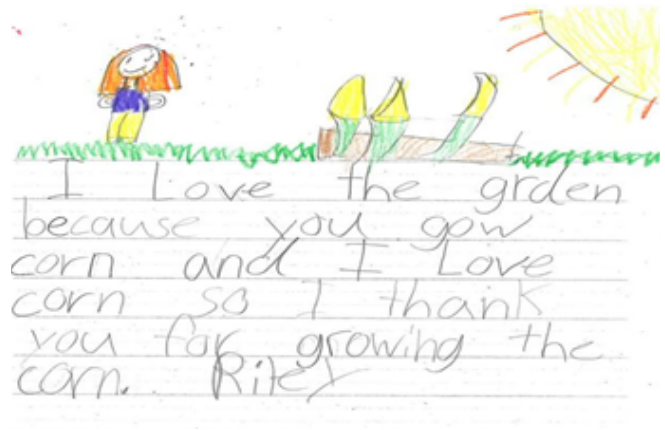 I Love the grden
because you gow
corn and I Love
corn so I thank
you for growing the
corn. Riley